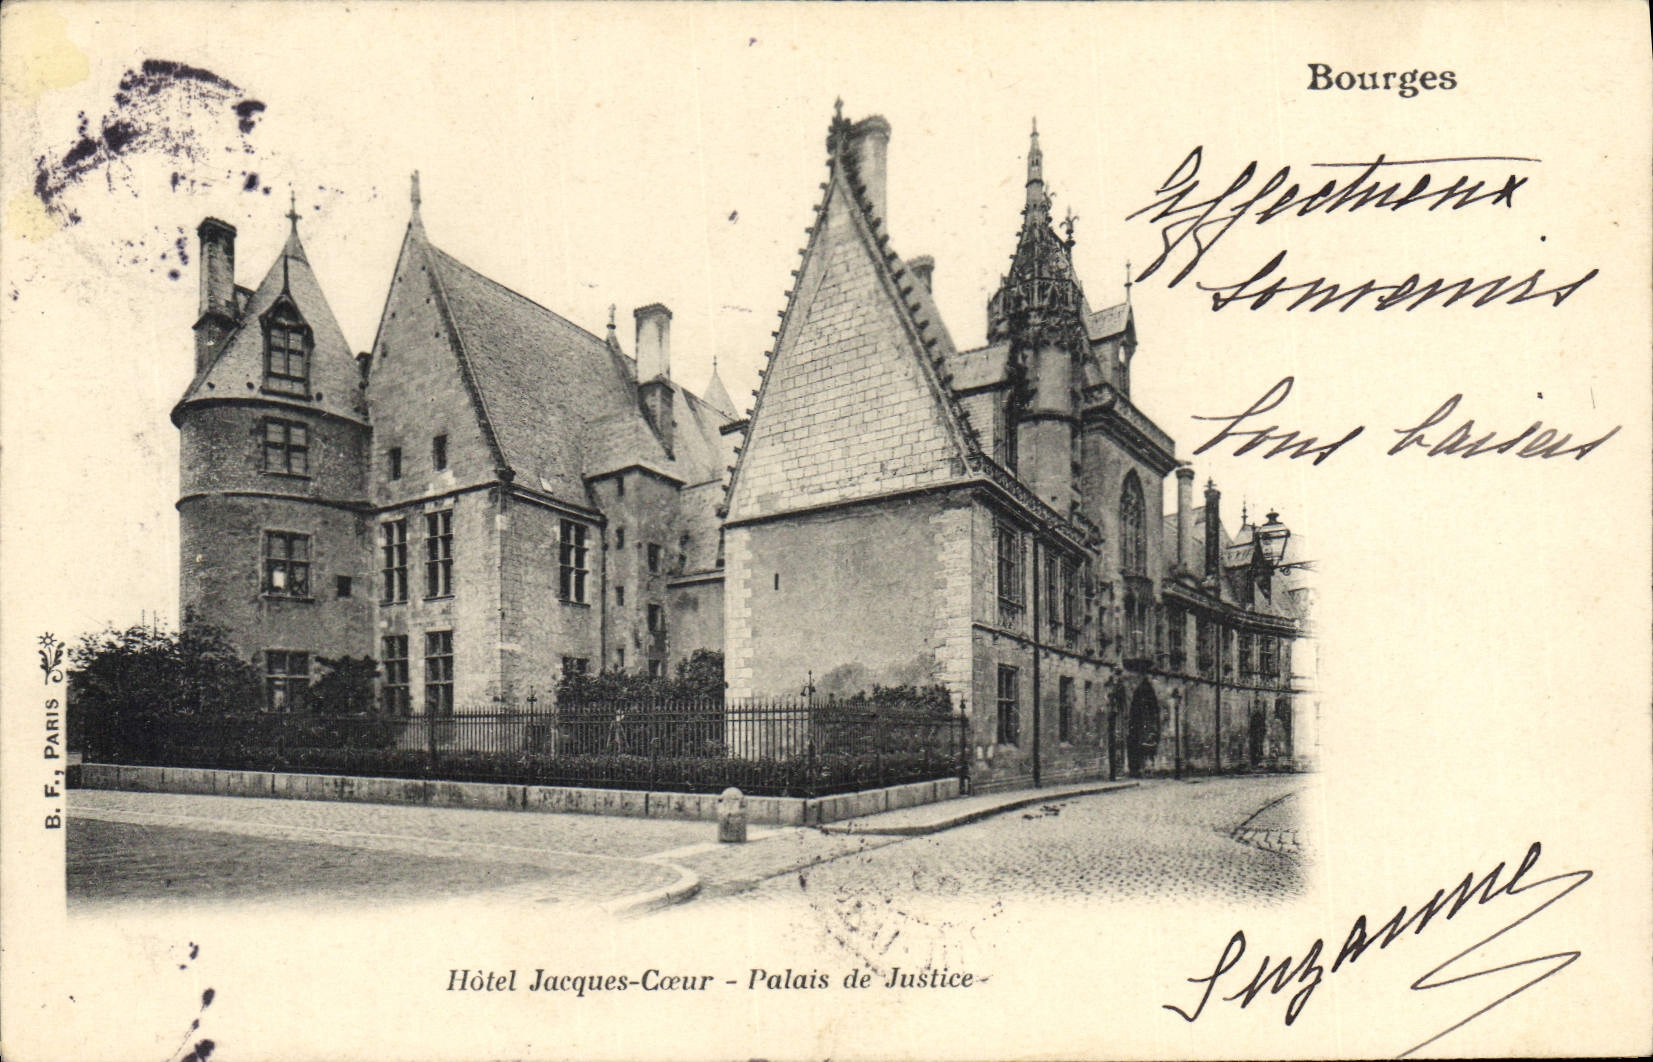 Bourges
Affectueux
Souvenirs
bons baisers
Suzanne
B. F., PARIS
Hôtel Jacques-Cœur - Palais de Justice